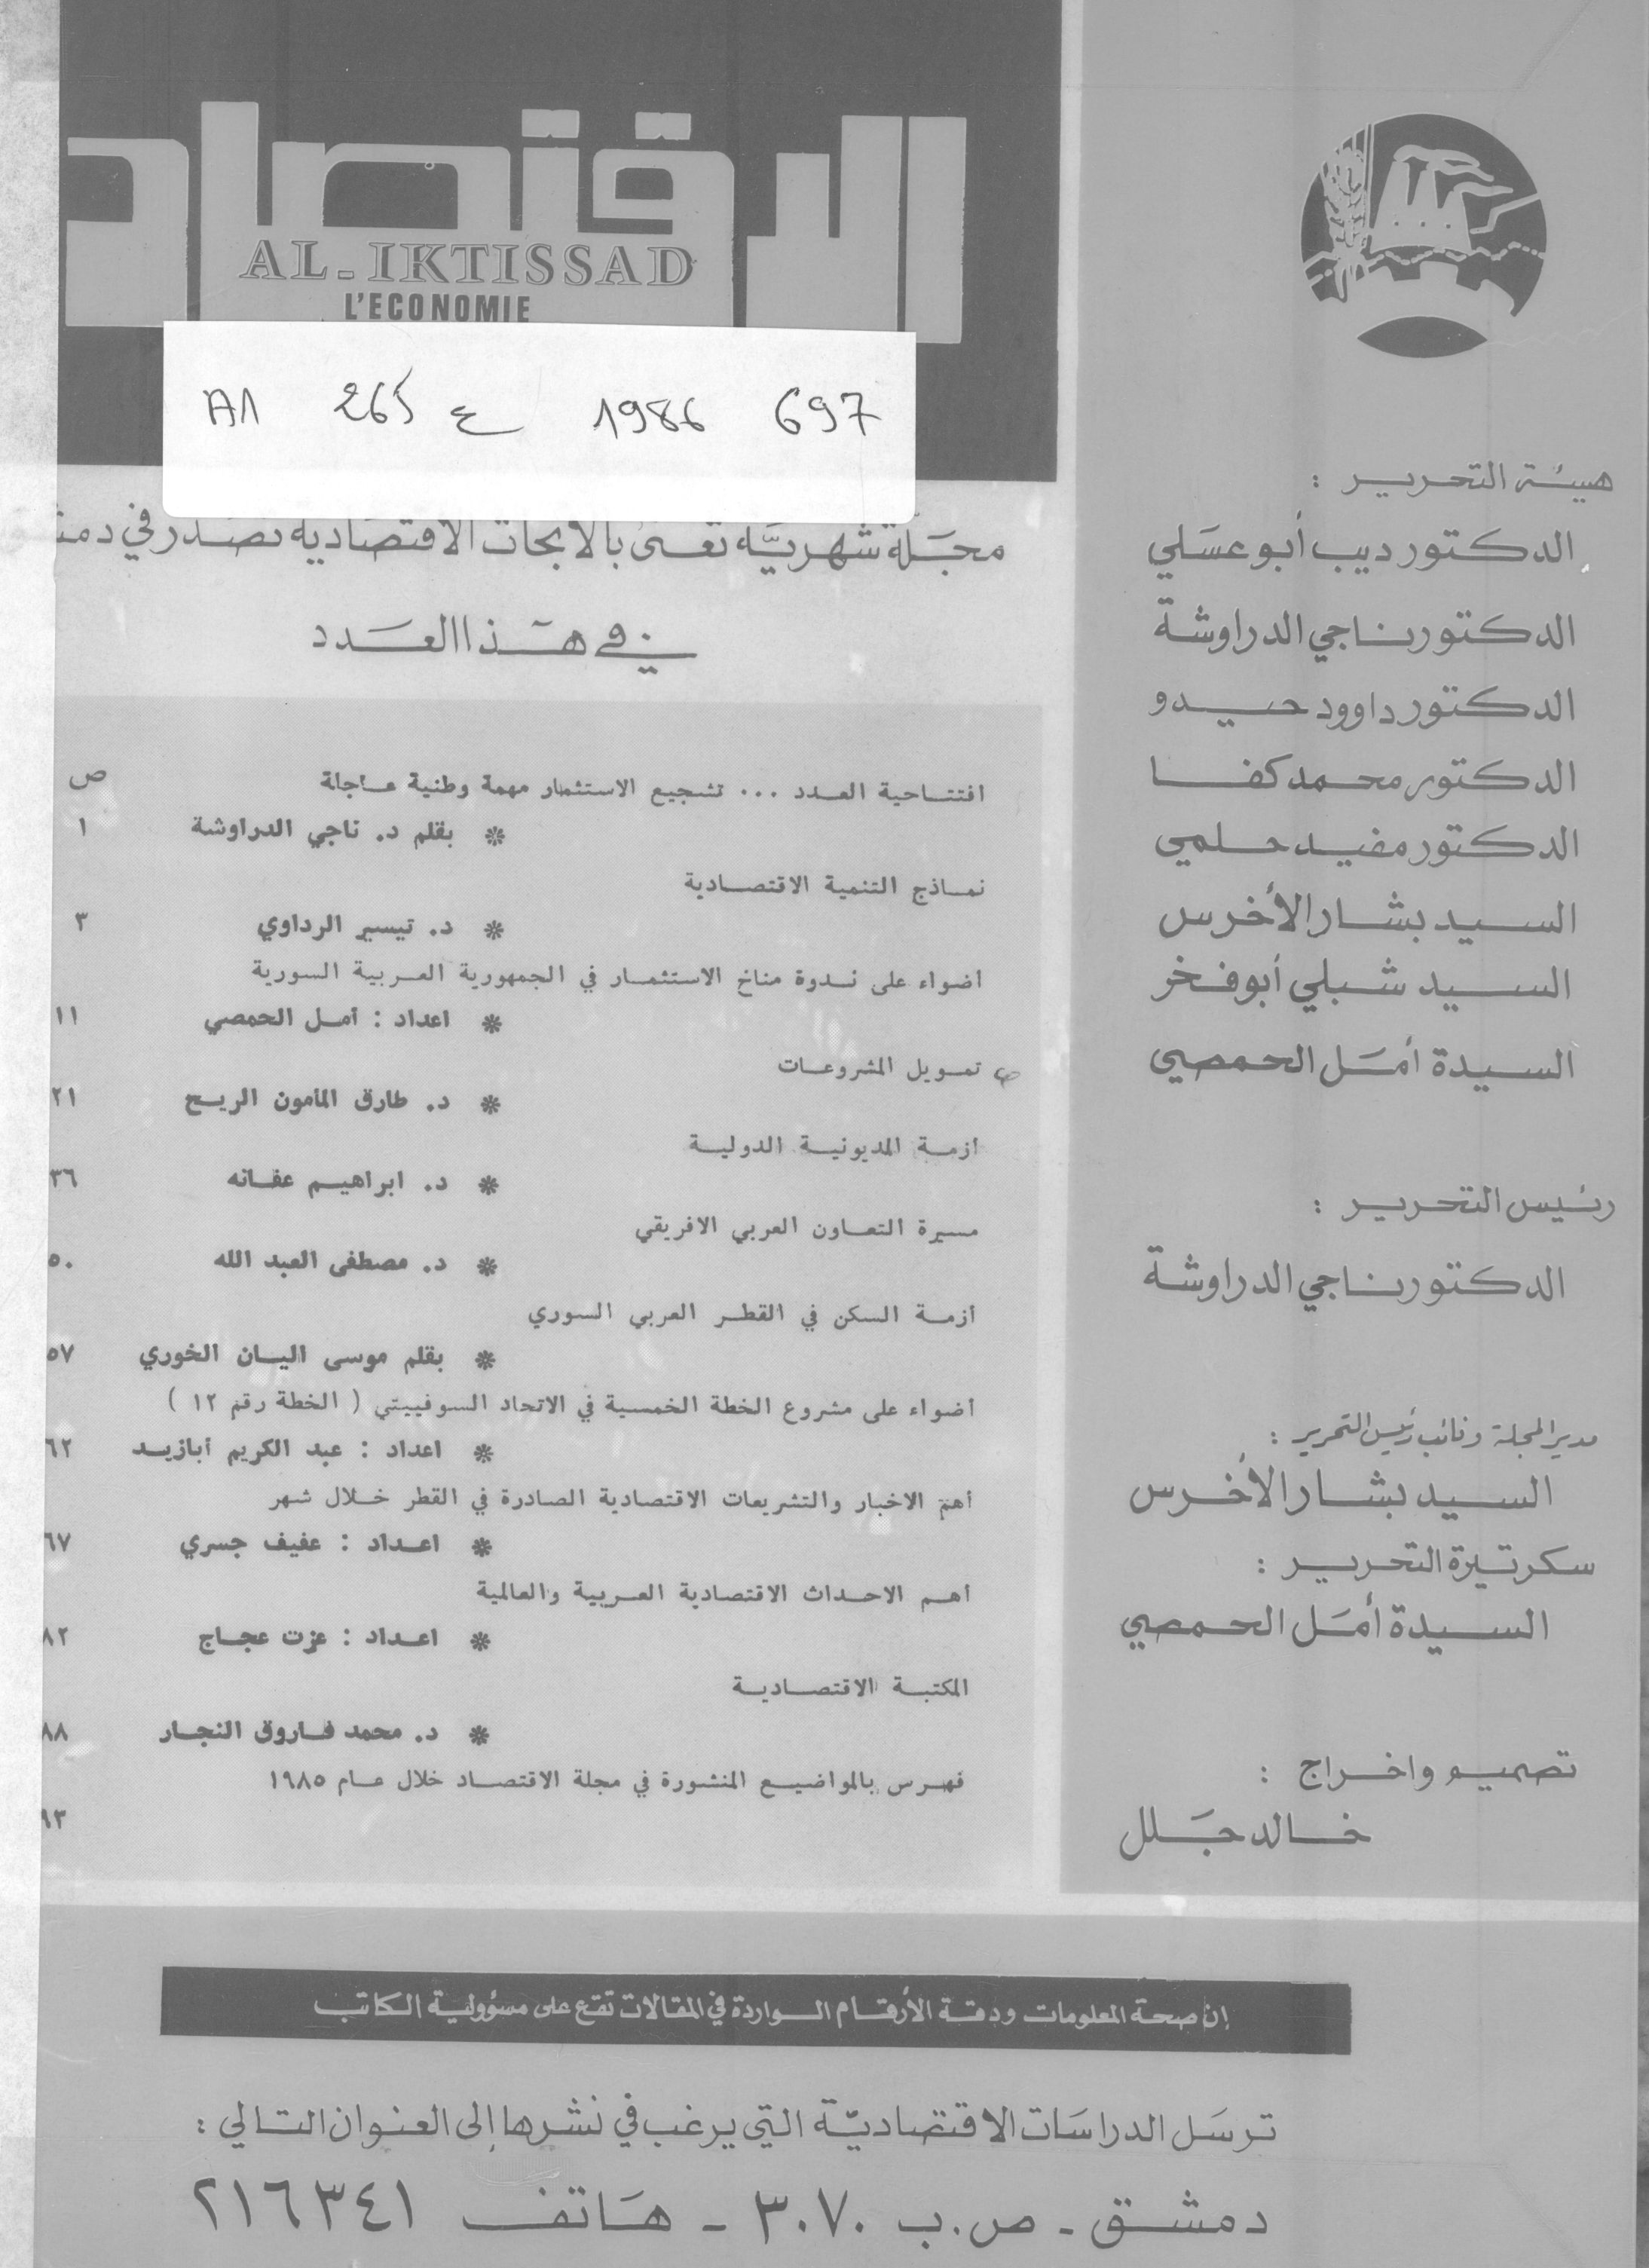 الاقتصاد
AL-IKTISSAD
L'ECONOMIE
A1 265 ع 1986 697
مجلة شهرية تعنى بالأبحاث الاقتصادية تصدر في
في هذا العدد
ص
افتتاحية العدد ... تشجيع الاستثمار مهمة وطنية عاجلة
* بقلم د. ناجي الدراوشة ١
نماذج التنمية الاقتصادية
* د. تيسير الرداوي ٣
أضواء على ندوة مناخ الاستثمار في الجمهورية العربية السورية
* اعداد : أمل الحمصي ١١
تمويل المشروعات
* د. طارق المأمون الريح ٢١
أزمة المديونية الدولية
* د. ابراهيم عفانه ٣٦
مسيرة التعاون العربي الافريقي
* د. مصطفى العبد الله ٥٠
أزمة السكن في القطر العربي السوري
* بقلم موسى اليان الخوري ٥٧
أضواء على مشروع الخطة الخمسية في الاتحاد السوفييتي ( الخطة رقم ١٢ )
* اعداد : عبد الكريم أبازيد ٦٢
أهم الاخبار والتشريعات الاقتصادية الصادرة في القطر خلال شهر
* اعداد : عفيف جسري ٦٧
أهم الاحداث الاقتصادية العربية والعالمية
* اعداد : عزت عجاج ٨٢
المكتبة الاقتصادية
* د. محمد فاروق النجار ٨٨
فهرس بالمواضيع المنشورة في مجلة الاقتصاد خلال عام ١٩٨٥
٩٣
هيئة التحرير :
الدكتور ديب أبو عسلي
الدكتور ناجي الدراوشة
الدكتور داوود حيدو
الدكتور محمد كفا
الدكتور مفيد حلمي
السيد بشار الأخرس
السيد شبلي أبو فخر
السيدة أمل الحمصي
رئيس التحرير :
الدكتور ناجي الدراوشة
مدير المجلة ونائب رئيس التحرير :
السيد بشار الأخرس
سكرتيرة التحرير :
السيدة أمل الحمصي
تصميم واخراج :
خالد جلل
إن صحة المعلومات ودقة الأرقام الواردة في المقالات تقع على مسؤولية الكاتب
ترسل الدراسات الاقتصادية التي يرغب في نشرها إلى العنوان التالي :
دمشق - ص.ب ٣٠٧٠ - هاتف ٢١٦٣٤١